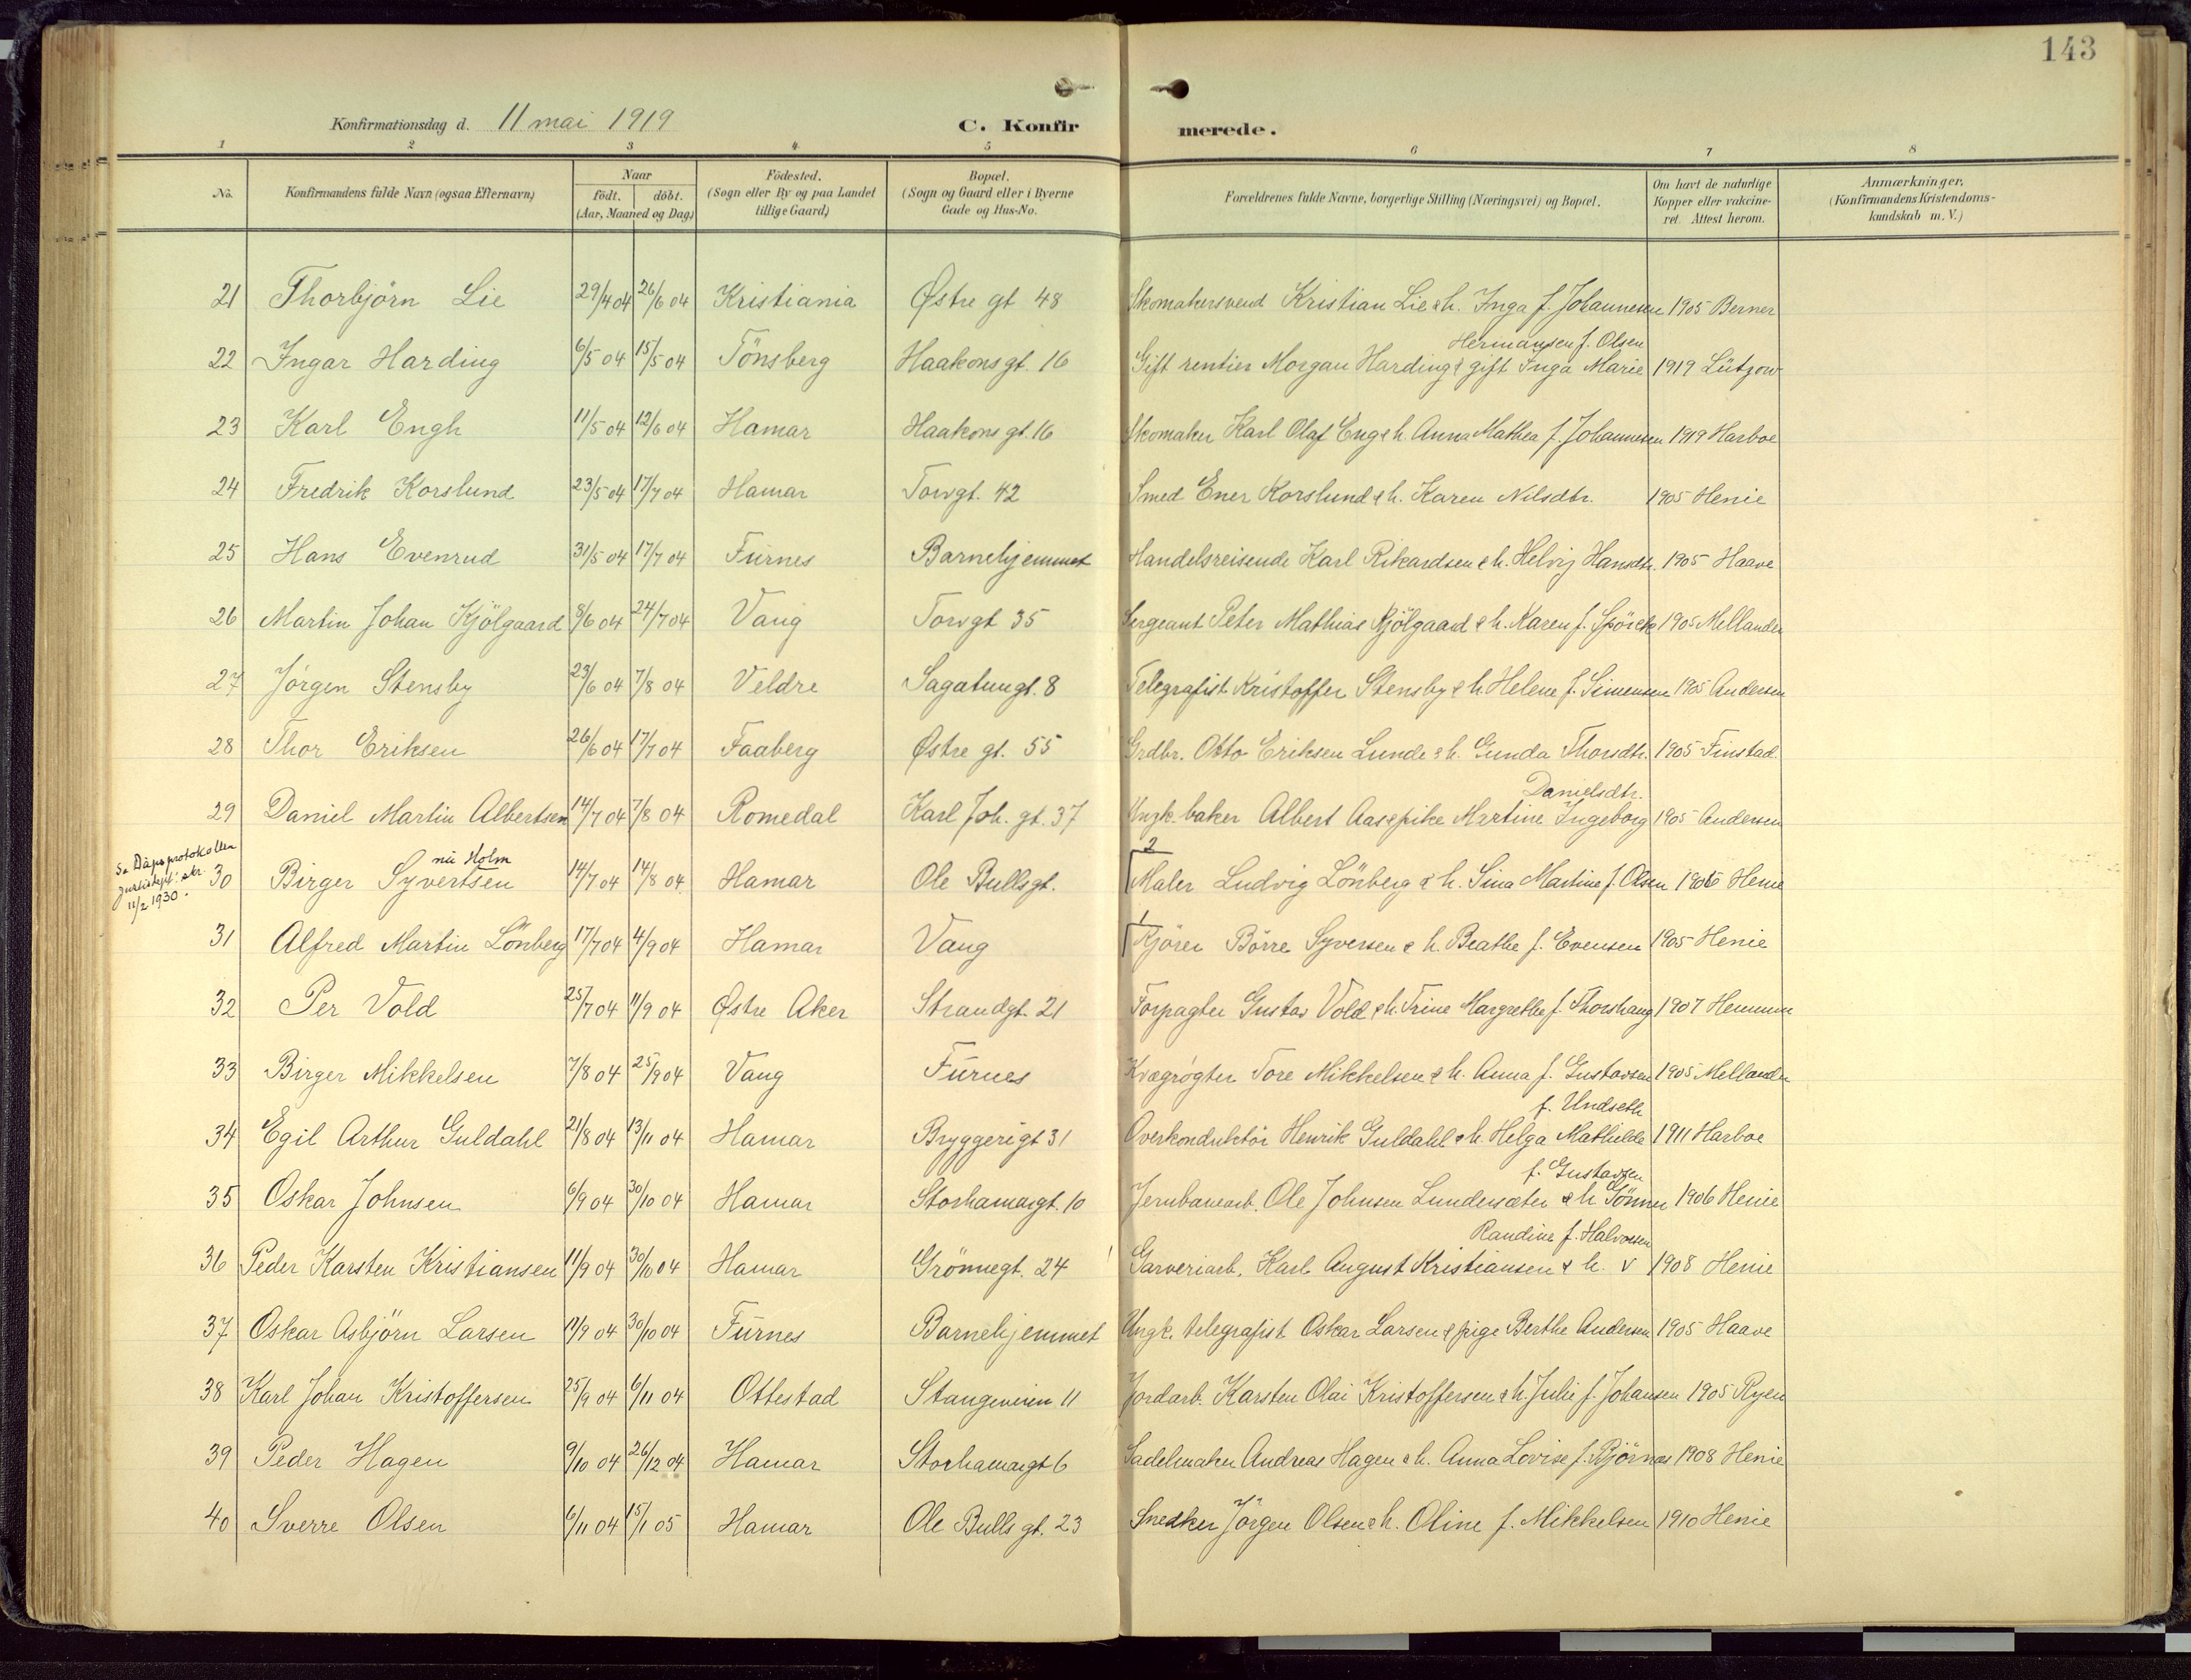 143
Konfirmationsdag d. 11 mai 1919 C. Konfirmerede.
1 2 3 4 5 6 7 8
No. Konfirmandens fulde Navn (ogsaa Efternavn) Naar født. døbt. (Aar, Maaned og Dag) Fødested. (Sogn eller By og paa Landet tillige Gaard) Bopæl. (Sogn og Gaard eller i Byerne Gade og Hus-No. Forældrenes fulde Navne, borgerlige Stilling (Næringsvei) og Bopæl. Om havt de naturlige Kopper eller vakcineret. Attest herom. Anmærkninger, (Konfirmandens Kristendomskundskab m. V.)
21 Thorbjörn Lie 29/4 04 26/6 04 Kristiania Østre gt 48 Skomakersvend Kristian Lie & h. Inga f. Johannesen 1905 Berner
22 Ingar Harding 6/5 04 15/5 04 Tönsberg Haakons gt. 16 Gift rentier Morgan Harding & gift Inga Marie Hermansen f. Olsen 1919 Lützow
23 Karl Engh 11/5 04 12/6 04 Hamar Haakons gt. 16 Skomaker Karl Olaf Eng & h. Anna Mathea f. Johannesen 1919 Harboe
24 Fredrik Korslund 23/5 04 17/7 04 Hamar Torvgt. 42 Smed Ener Korslund & h. Karen Nilsdtr. 1905 Henie
25 Hans Evenrud 31/5 04 17/7 04 Furnes Barnehjemmet Handelsreisende Karl Rikardsen & h. Helvig Hansdtr. 1905 Haave
26 Martin Johan Kjölgaard 8/6 04 24/7 04 Vang Torvgt 35 Sergeant Peter Mathias Kjölgaard & h. Karen f. Spörck 1905 Mellander
27 Jörgen Stensby 23/6 04 7/8 04 Veldre Sagatungt. 8 Telegrafist Kristoffer Stensby & h. Helene f. Simensen 1905 Andersen
28 Thor Eriksen 26/6 04 17/7 04 Faaberg Østre gt. 55 Grdbr. Otto Eriksen Lunde & h. Gunda Thorsdtr. 1905 Finstad.
29 Daniel Martin Albertsen 14/7 04 7/8 04 Romedal Karl Joh. gt. 37 Ungk. baker Albert Aas & pike Martine Ingeborg Danielsdtr. 1905 Andersen
S. Dåpsprotokollen
11/2 1930.
30 Birger Syvertsen nu Holm 14/7 04 14/8 04 Hamar Ole Bullsgt. 2 Maler Ludvig Lönberg & h. Sina Martine f. Olsen 1906 Henie
31 Alfred Martin Lönberg 17/7 04 4/9 04 Hamar Vang 1 Kjörer Börre Syversen & h. Beathe f. Evensen 1905 Henie
32 Per Vold 25/7 04 11/9 04 Østre Aker Strandgt. 21 Forpagter Gustav Vold & h. Trine Margrethe f. Thorshaug 1907 Hemmen
33 Birger Mikkelsen 7/8 04 25/9 04 Vang Furnes Kvægrögter Tore Mikkelsen & h. Anna f. Gustavsen 1905 Mellander
34 Egil Arthur Guldahl 21/8 04 13/11 04 Hamar Bryggerigt 31 Overkonduktör Henrik Guldahl & h. Helga Mathilde f. Undseth 1911 Harboe
35 Oskar Johnsen 6/9 04 30/10 04 Hamar Storhamargt. 10 Jernbanearb. Ole Johnsen Lundersæter & h. Gönner f. Gustavsen 1906 Henie
36 Peder Karsten Kristiansen 11/9 04 30/10 04 Hamar Grönnegt. 24 Garveriarb. Karl August Kristiansen & h. v Randine f. Halvorsen 1908 Henie
37 Oskar Asbjörn Larsen 17/9 04 30/10 04 Furnes Barnehjemmet Ungk. telegrafist Oskar Larsen & pige Berthe Andersen 1905 Haave
38 Karl Johan Kristoffersen 25/9 04 6/11 04 Ottestad Stangeveien 11 Jordarb. Karsten Olai Kristoffersen & h. Julie f. Johansen 1905 Ryen
39 Peder Hagen 9/10 04 26/12 04 Hamar Storhamargt 6 Sadelmaker Andreas Hagen & h. Anna Lovise f. Björnas 1908 Henie
40 Sverre Olsen 6/11 04 15/1 05 Hamar Ole Bulls gt. 23 Snedker Jörgen Olsen & h. Oline f. Mikkelsen 1910 Henie